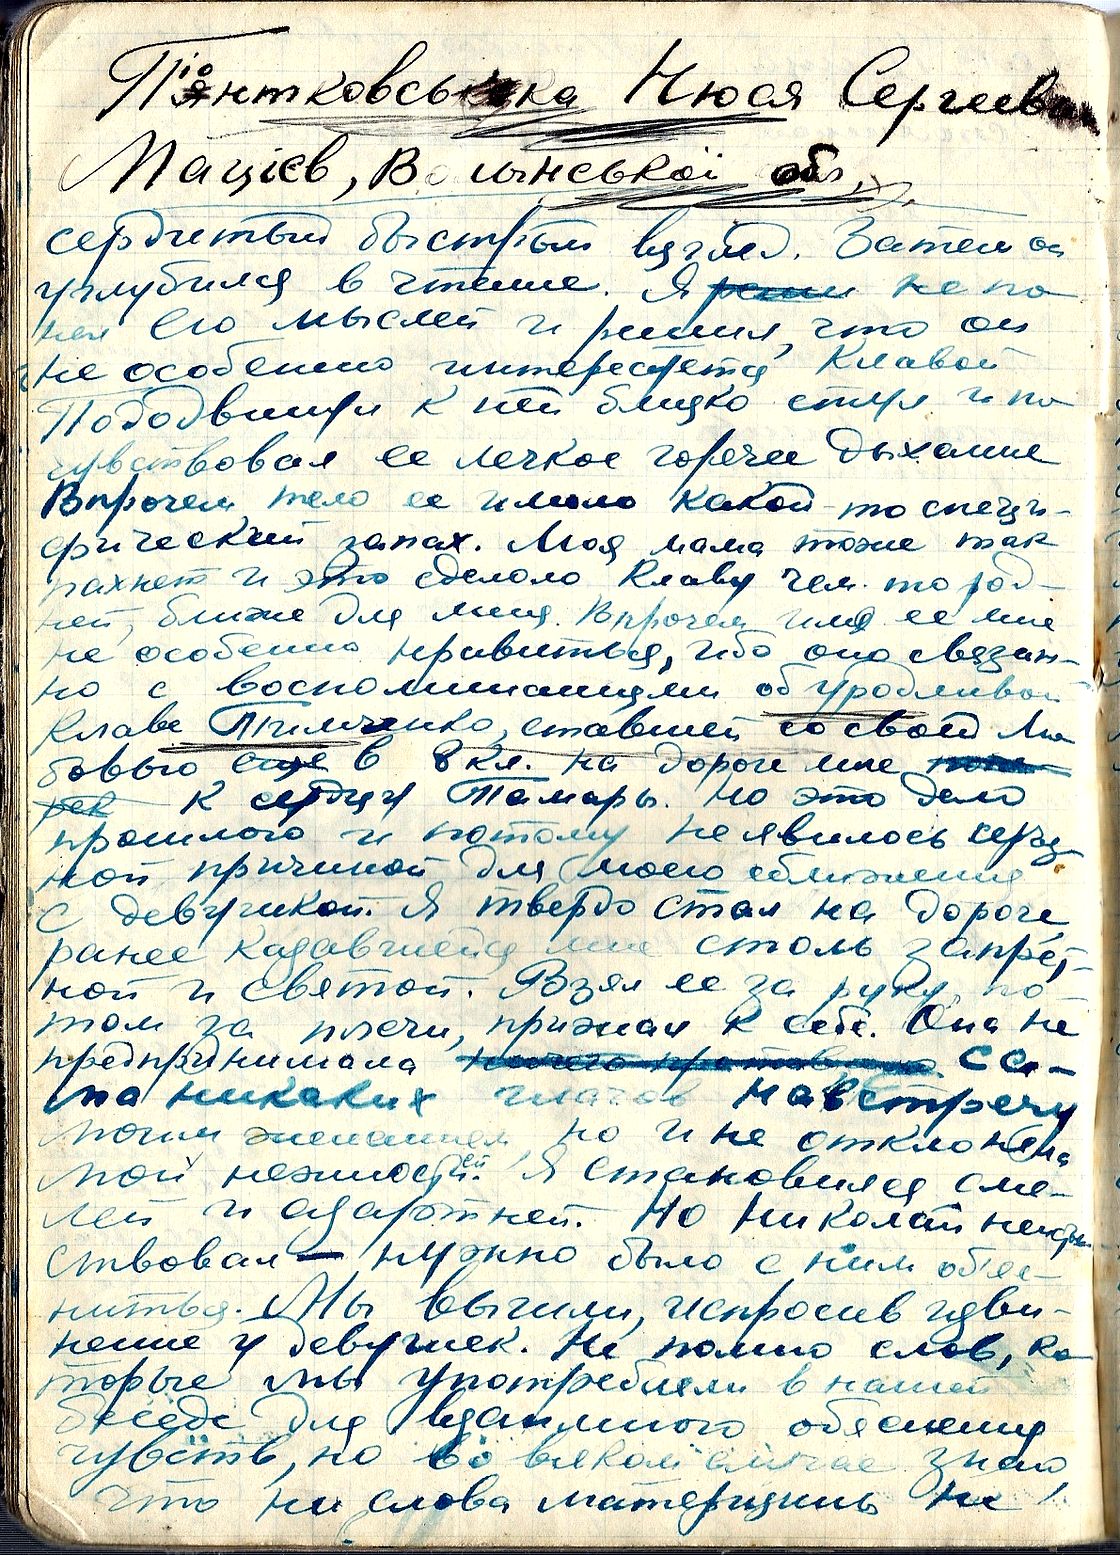 Піонтковська Нюся Сергеевна
Мацієв, Волынської обл.
сердитый быстрый взгляд. Затем он
углубился в чтение. Я не по
нял его мыслей и решил, что он
не особенно интересуется Клавой
Пододвинул к ней близко стул и по
чувствовал ее легкое горячее дыхание
Впрочем, тело ее имело какой-то специ-
фический запах. Моя мама тоже так
пахнет и это сделало Клаву чем-то род-
ней, ближе для меня. Впрочем имя ее мне
не особенно нравиться, ибо оно связан-
но с воспоминаниями об уродливой
Клаве Тимченко, ставшей со своей лю
бовью еще в 8 кл. на дороге мне
к сердцу Тамары. Но это дело
прошлого и потому не явилось серьез
ной причиной для моего сближения
с девушкой. Я твердо стал на дороге,
ранее казавшейся мне столь запрет-
ной и святой. Взял ее за руку, по-
том за плечи, прижал к себе. Она не
предпринимала сса-
ма никаких шагов навстречу
моим желаниям но и не отклоняла
мой нежностей. Я становился сме-
лей и азартней. Но Николай
ствовал — нужно было с ним объяс-
ниться. Мы вышли, испросив изви-
нение у девушек. Не помню слов, ко
торые мы употребляли в нашей
беседе для взаимного обяснения
чувств, но во всяком случае знаю
что ни слова матерщины не